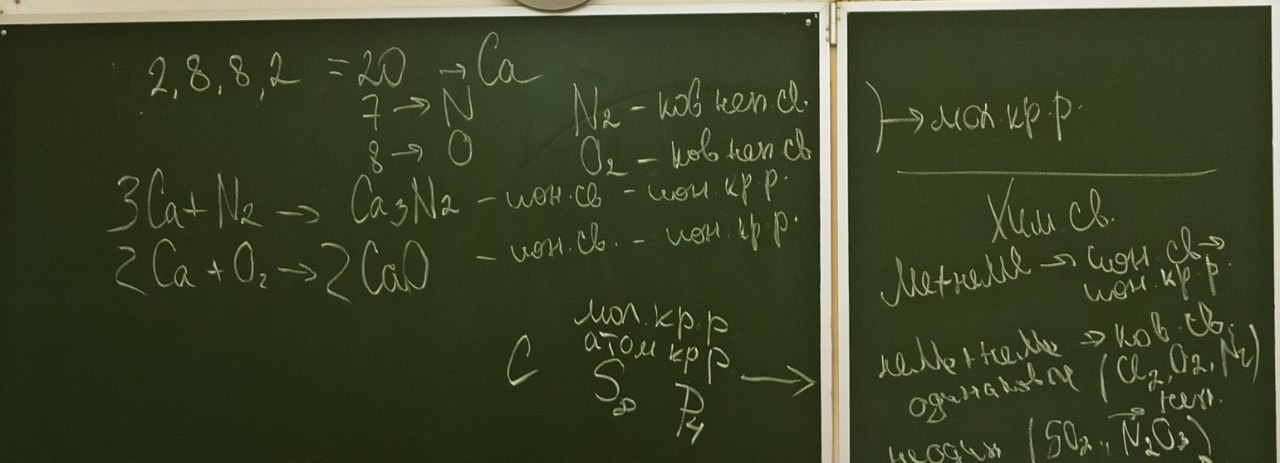 2,8,8,2 = 20 → Ca
7 → N
8 → O
N₂ - ков неп. св.
O₂ - ков неп св
3Ca + N₂ → Ca₃N₂ - ион.св - ион.кр р.
2Ca + O₂ → 2CaO - ион.св. - ион.кр.р.
мол.кр.р
атом кр р
C S₈ P₄ →
) → мол кр.р.
Хим св.
Ме+неМе → ион. св →
ион.кр.р.
неМе+неМе → ков. св.
одинаковые (Cl₂, O₂, N₂)
неп.
неодин (SO₂, N₂O₃)